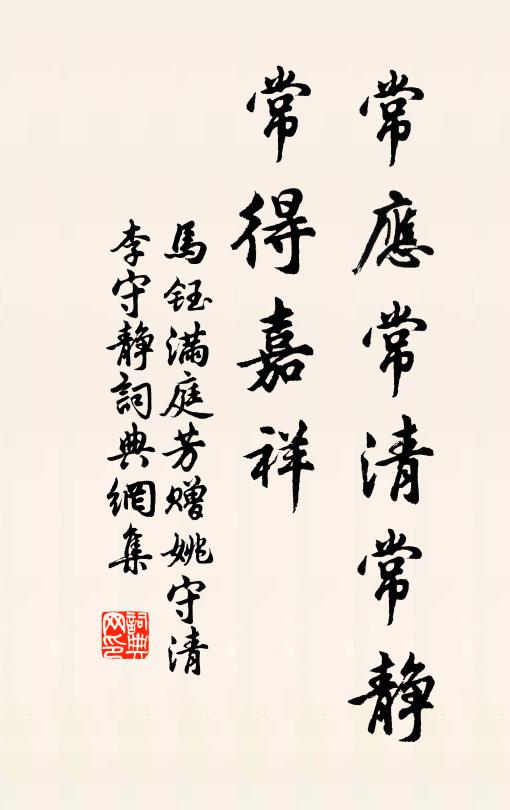 常應常清常靜
常得嘉祥
馬鈺滿庭芳赠姚守清
李守靜詞典網集
詞典网印